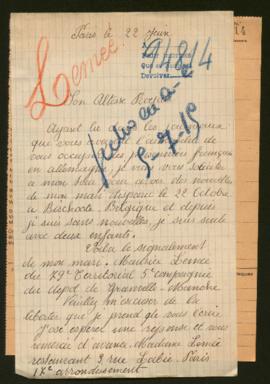 Paris le 22 Juin
94814
Lemée
Devolver
Son Altesse Royale
Ayant lu dans les journaux
que vous avez l'amabilité de
vous occuper des prisonniers français
en allemagne je viens vous solliciter
à mon tour pour avoir des nouvelles
de mon mari disparu le 22 Octobre
à Bixchoote Belgique et depuis
je suis sans nouvelles, je suis seule
avec deux enfants.
Voila le signalement
de mon mari. Maurice Lemée
du 79e Territorial 5e compagnie
du dépot de Granville - Manche
Veuillez m'excuser de la
liberter que je prend de vous écrire
J'ose esperer une reponse et vous
remercie d'avance Madame Lemée
restaurant 9 rue Labie - Paris
17e arrondissement
9-7-15